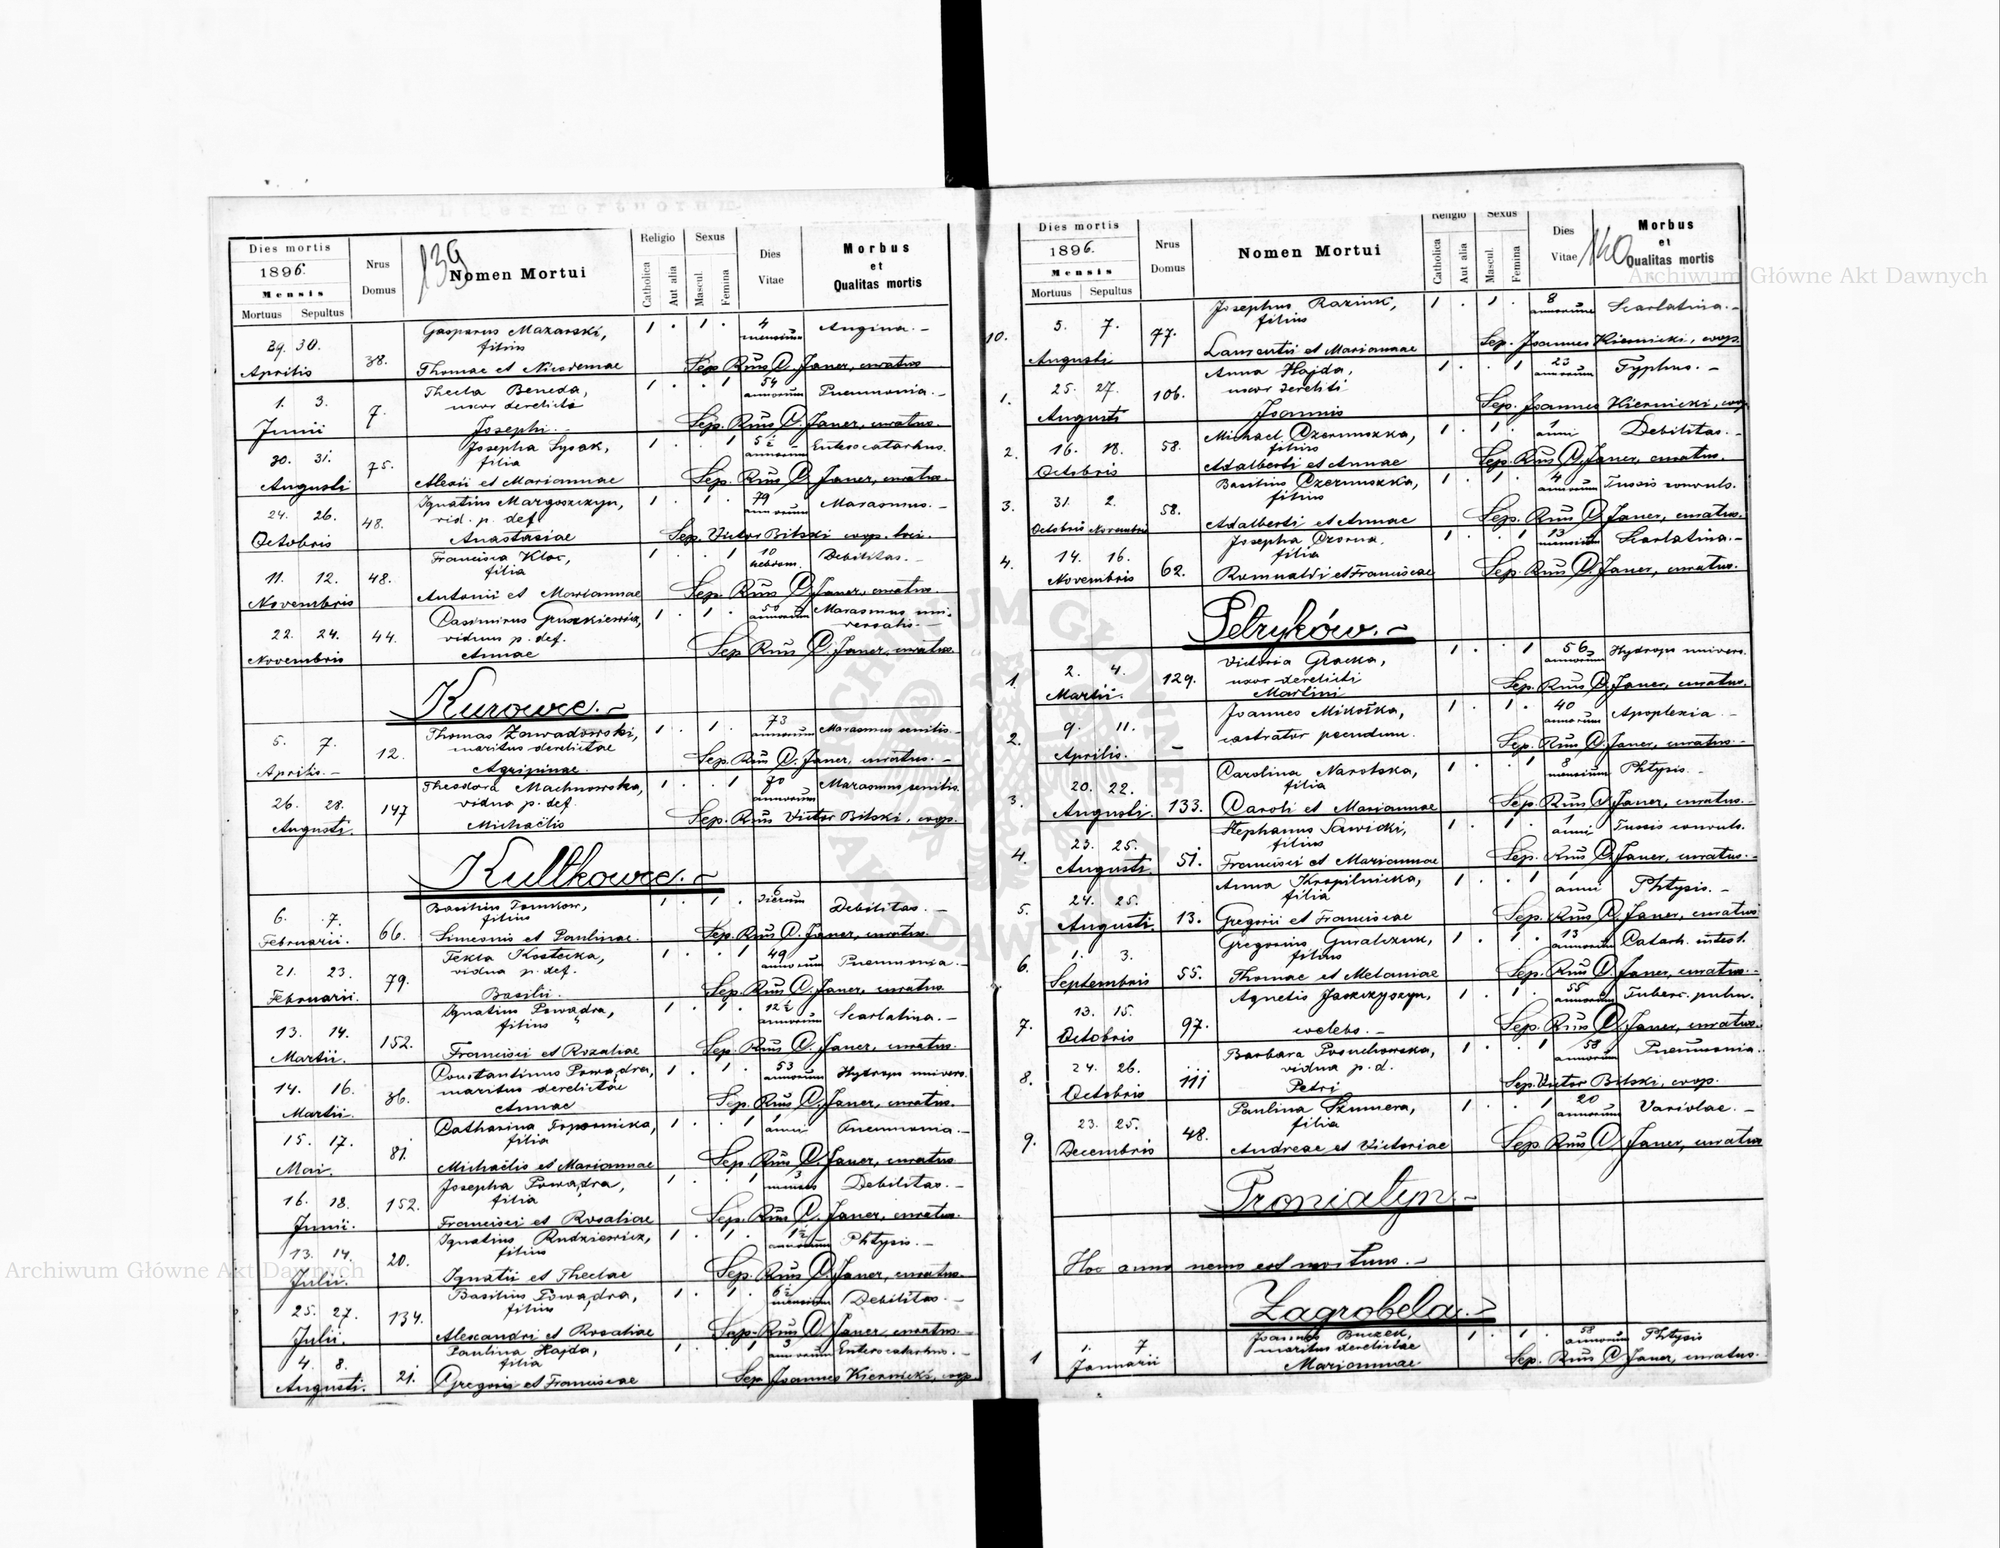 Dies mortis
1896.
Mensis
Mortuus Sepultus
Nrus
Domus
139
Nomen Mortui
Religio
Catholica
Aut alia
Sexus
Mascul.
Femina
Dies
Vitae
Morbus
et
Qualitas mortis
Gasparus Mazarski, 1 . 1 . 4 Angina. -
29. 30. filius mensium
Aprilis 38. Thomae et Nicodemae Sep. Rms C. Janer, curatus
1. 3. Thecla Beneda, 1 . . 1 54 Pneumonia. -
uxor derelicta annorum
Junii 7. Josephi. - Sep. Rms C. Janer, curatus.
30. 31. Josepha Sysak, 1 . . 1 5½ Enterocatarhus.
filia annorum
Augusti 75. Alexii et Mariannae Sep. Rms C. Janer, curatus.
24. 26. Ignatius Margoszczyn, 1 . 1 . 79 Marasmus. -
vid. p. def. annorum
Octobris 48. Anastasiae Sep. Victor Bilski coop. loci.
11. 12. Francisca Kloc, 1 . . 1 10 Debilitas. -
filia hebdom.
Novembris 48. Antonii et Mariannae Sep. Rms C. Janer, curatus.
22. 24. Casimirus Gruszkiewicz, 1 . 1 . 50 Marasmus uni-
viduus p. def. annorum versalis. -
Novembris 44. Annae Sep. Rms C. Janer, curatus.
Kurowce. -
5. 7. Thomas Zawadowski, 1 . 1 . 73 Marasmus senilis. -
maritus derelictae annorum
Aprilis. - 12. Agripinae. Sep. Rms C. Janer, curatus. -
26. 28. Theodora Machnowska, 1 . . 1 70 Marasmus senilis.
vidua p. def. annorum
Augusti. 147 Michaëlis Sep. Rms Victor Bilski, coop.
Kutkowce. -
6. 7. Basilius Tomkow, 1 . 1 . 6 dierum Debilitas. -
filius
Februarii. 66. Simeonis et Paulinae. Sep. Rms C. Janer, curatus.
21. 23. Tekla Kostecka, 1 . . 1 49 Pneumonia. -
vidua p. def. annorum
Februarii. 79. Basilii. Sep. Rms C. Janer, curatus.
13. 14. Ignatius Powądra, 1 . 1 . 12½ Scarlatina. -
filius annorum
Martii. 152. Francisci et Rozaliae Sep. Rms C. Janer, curatus.
14. 16. Constantinus Powądra, 1 . 1 . 53 Hydrops univers.
maritus derelictae annorum
Martii. 36. Annae Sep. Rms C. Janer, curatus.
15. 17. Catharina Topornicka, 1 . . 1 1 anni Pneumonia. -
filia
Mai. 81. Michaëlis et Mariannae Sep. Rms C. Janer, curatus
16. 18. Josepha Powądra, 1 . . 1 3 menses Debilitas. -
filia
Junii. 152. Francisci et Rosaliae Sep. Rms C. Janer, curatus.
13. 14. Ignatius Rudziewicz, 1 . 1 . 1½ Phtysis. -
filius annorum
Julii. 20. Ignatii et Theclae Sep. Rms C. Janer, curatus.
25. 27. Basilius Powądra, 1 . 1 . 6½ Debilitas. -
filius mensium
Julii. 134. Alexandri et Rosaliae Sep. Rms C. Janer, curatus. -
4. 8. Paulina Hajda, 1 . . 1 3 Enterocatarhus. -
filia annorum
Augusti. 21. Gregorii et Franciscae Sep. Joannes Kiernicki, coop.
Dies mortis
1896.
Mensis
Mortuus Sepultus
Nrus
Domus
Nomen Mortui
Religio
Catholica
Aut alia
Sexus
Mascul.
Femina
Dies
Vitae
140
Morbus
et
Qualitas mortis
5. 7. Josephus Razink, 1 . 1 . 8 Scarlatina. -
10. 77. filius annorum
Augusti Laurentii et Mariannae Sep. Joannes Kiernicki, coop.
25. 27. Anna Hajda, 1 . . 1 23 Typhus. -
1. 106. uxor derelicti annorum
Augusti Joannis Sep. Joannes Kiernicki, coop.
2. 16. 18. 58. Michael Czerniuszka, 1 . 1 . 1 anni Debilitas. -
filius
Octobris Adalberti et Annae Sep. Rms C. Janer, curatus.
3. 31. 2. 58. Basilius Czerniuszka, 1 . 1 . 4 Tussis convuls.
filius annorum
Octobris Novembris Adalberti et Annae Sep. Rms C. Janer, curatus.
4. 14. 16. 62. Josepha Dzorna. 1 . . 1 13 Scarlatina. -
filia mensium
Novembris Romualdi et Franciscae Sep. Rms C. Janer, curatus.
Petryków. -
1. 2. 4. 129. Victoria Gracka, 1 . . 1 56 Hydrops univers.
uxor derelicti annorum
Martii. Martini Sep. Rms C. Janer, curatus.
2. 9. 11. - Joannes Mikoťka, 1 . 1 . 40 Apoplexia. -
castrator pecudum. annorum
Aprilis. Sep. Rms C. Janer, curatus. -
3. 20. 22. 133. Carolina Narolska, 1 . . 1 8 Phtysis. -
filia mensium
Augusti. Caroli et Mariannae Sep. Rms C. Janer, curatus. -
4. 23. 25. 51. Stephanus Sawicki, 1 . 1 . 1 anni Tussis convuls.
filius
Augusti. Francisci et Mariannae Sep. Rms C. Janer, curatus. -
5. 24. 25. 13. Anna Kropilnicka, 1 . . 1 1 anni Phtysis. -
filia
Augusti. Gregorii et Franciscae Sep. Rms C. Janer, curatus
6. 1. 3. 55. Gregorius Guralczuk, 1 . 1 . 13 Catarh. intest.
filius annorum
Septembris Thomae et Melaniae Sep. Rms C. Janer, curatus. -
7. 13. 15. 97. Agnetis Jaszczyszyn, 1 . 1 . 55 Tuberc. pulm.
annorum
Octobris coelebs. - Sep. Rms C. Janer, curatus.
8. 24. 26. 111 Barbara Posuchowska, 1 . . 1 58 Pneumonia.
vidua p. d. annorum
Octobris Petri Sep. Victor Bilski, coop.
9. 23. 25. 48. Paulina Szumera, 1 . . 1 20 Variolae. -
filia annorum
Decembris Andreae et Victoriae Sep. Rms C. Janer, curatus
Proniatyn. -
Hoc anno nemo est mortuus. -
Zagrobela. -
1 1. 7 Joannes Buczek, 1 . 1 . 58 annorum Phtysis
maritus derelictae
Januarii Mariannae Sep. Rms C. Janer, curatus.
Archiwum Główne Akt Dawnych
Archiwum Główne Akt Dawnych
ARCHIWUM GŁÓWNE AKT DAWNYCH